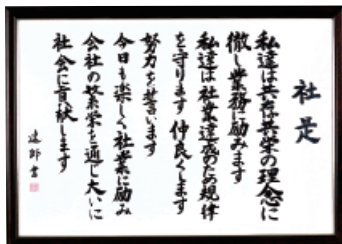 社是
私達は共存共栄の理念に
徹し業務に励みます
私達は社業達成のため規律
を守ります 仲良くします
努力を誓います
今日も楽しく社業に励み
会社の繁栄を通じ大いに
社会に貢献します